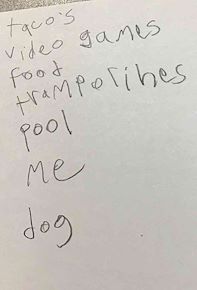 taco's
video games
food
trampolines
pool
me
dog